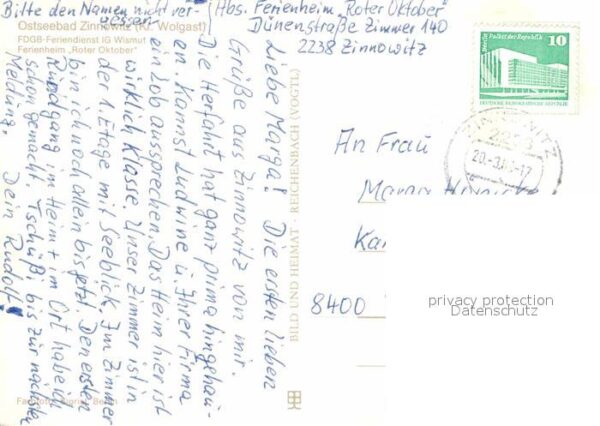 Bitte den Namen nicht ver-
gessen
Hbs. Ferienheim "Roter Oktober"
Dünenstraße Zimmer 140
2238 Zinnowitz
Ostseebad Zinnowitz (Kr. Wolgast)
FDGB-Feriendienst IG Wismut
Ferienheim „Roter Oktober"
Liebe Marga! Die ersten lieben
Grüße aus Zinnowitz von mir.
Die Herfahrt hat ganz prima hingehau-
en. Kannst Ludwine u. Ihrer Firma
ein Lob aussprechen. Das Heim hier ist
wirklich Klasse. Unser Zimmer ist in
der 1. Etage mit Seeblick. Im Zimmer
bin ich noch allein bis jetzt. Den ersten
Rundgang im Heim + im Ort habe ich
schon gemacht. Tschüß, bis zur nächsten
Meldung. Dein Rudolf!
BILD UND HEIMAT · REICHENBACH (VOGTL)
Berlin, Palast der Republik
10
DEUTSCHE DEMOKRATISCHE REPUBLIK
ZINNOWITZ
2238
An Frau
Marga
8400
privacy protection
Datenschutz